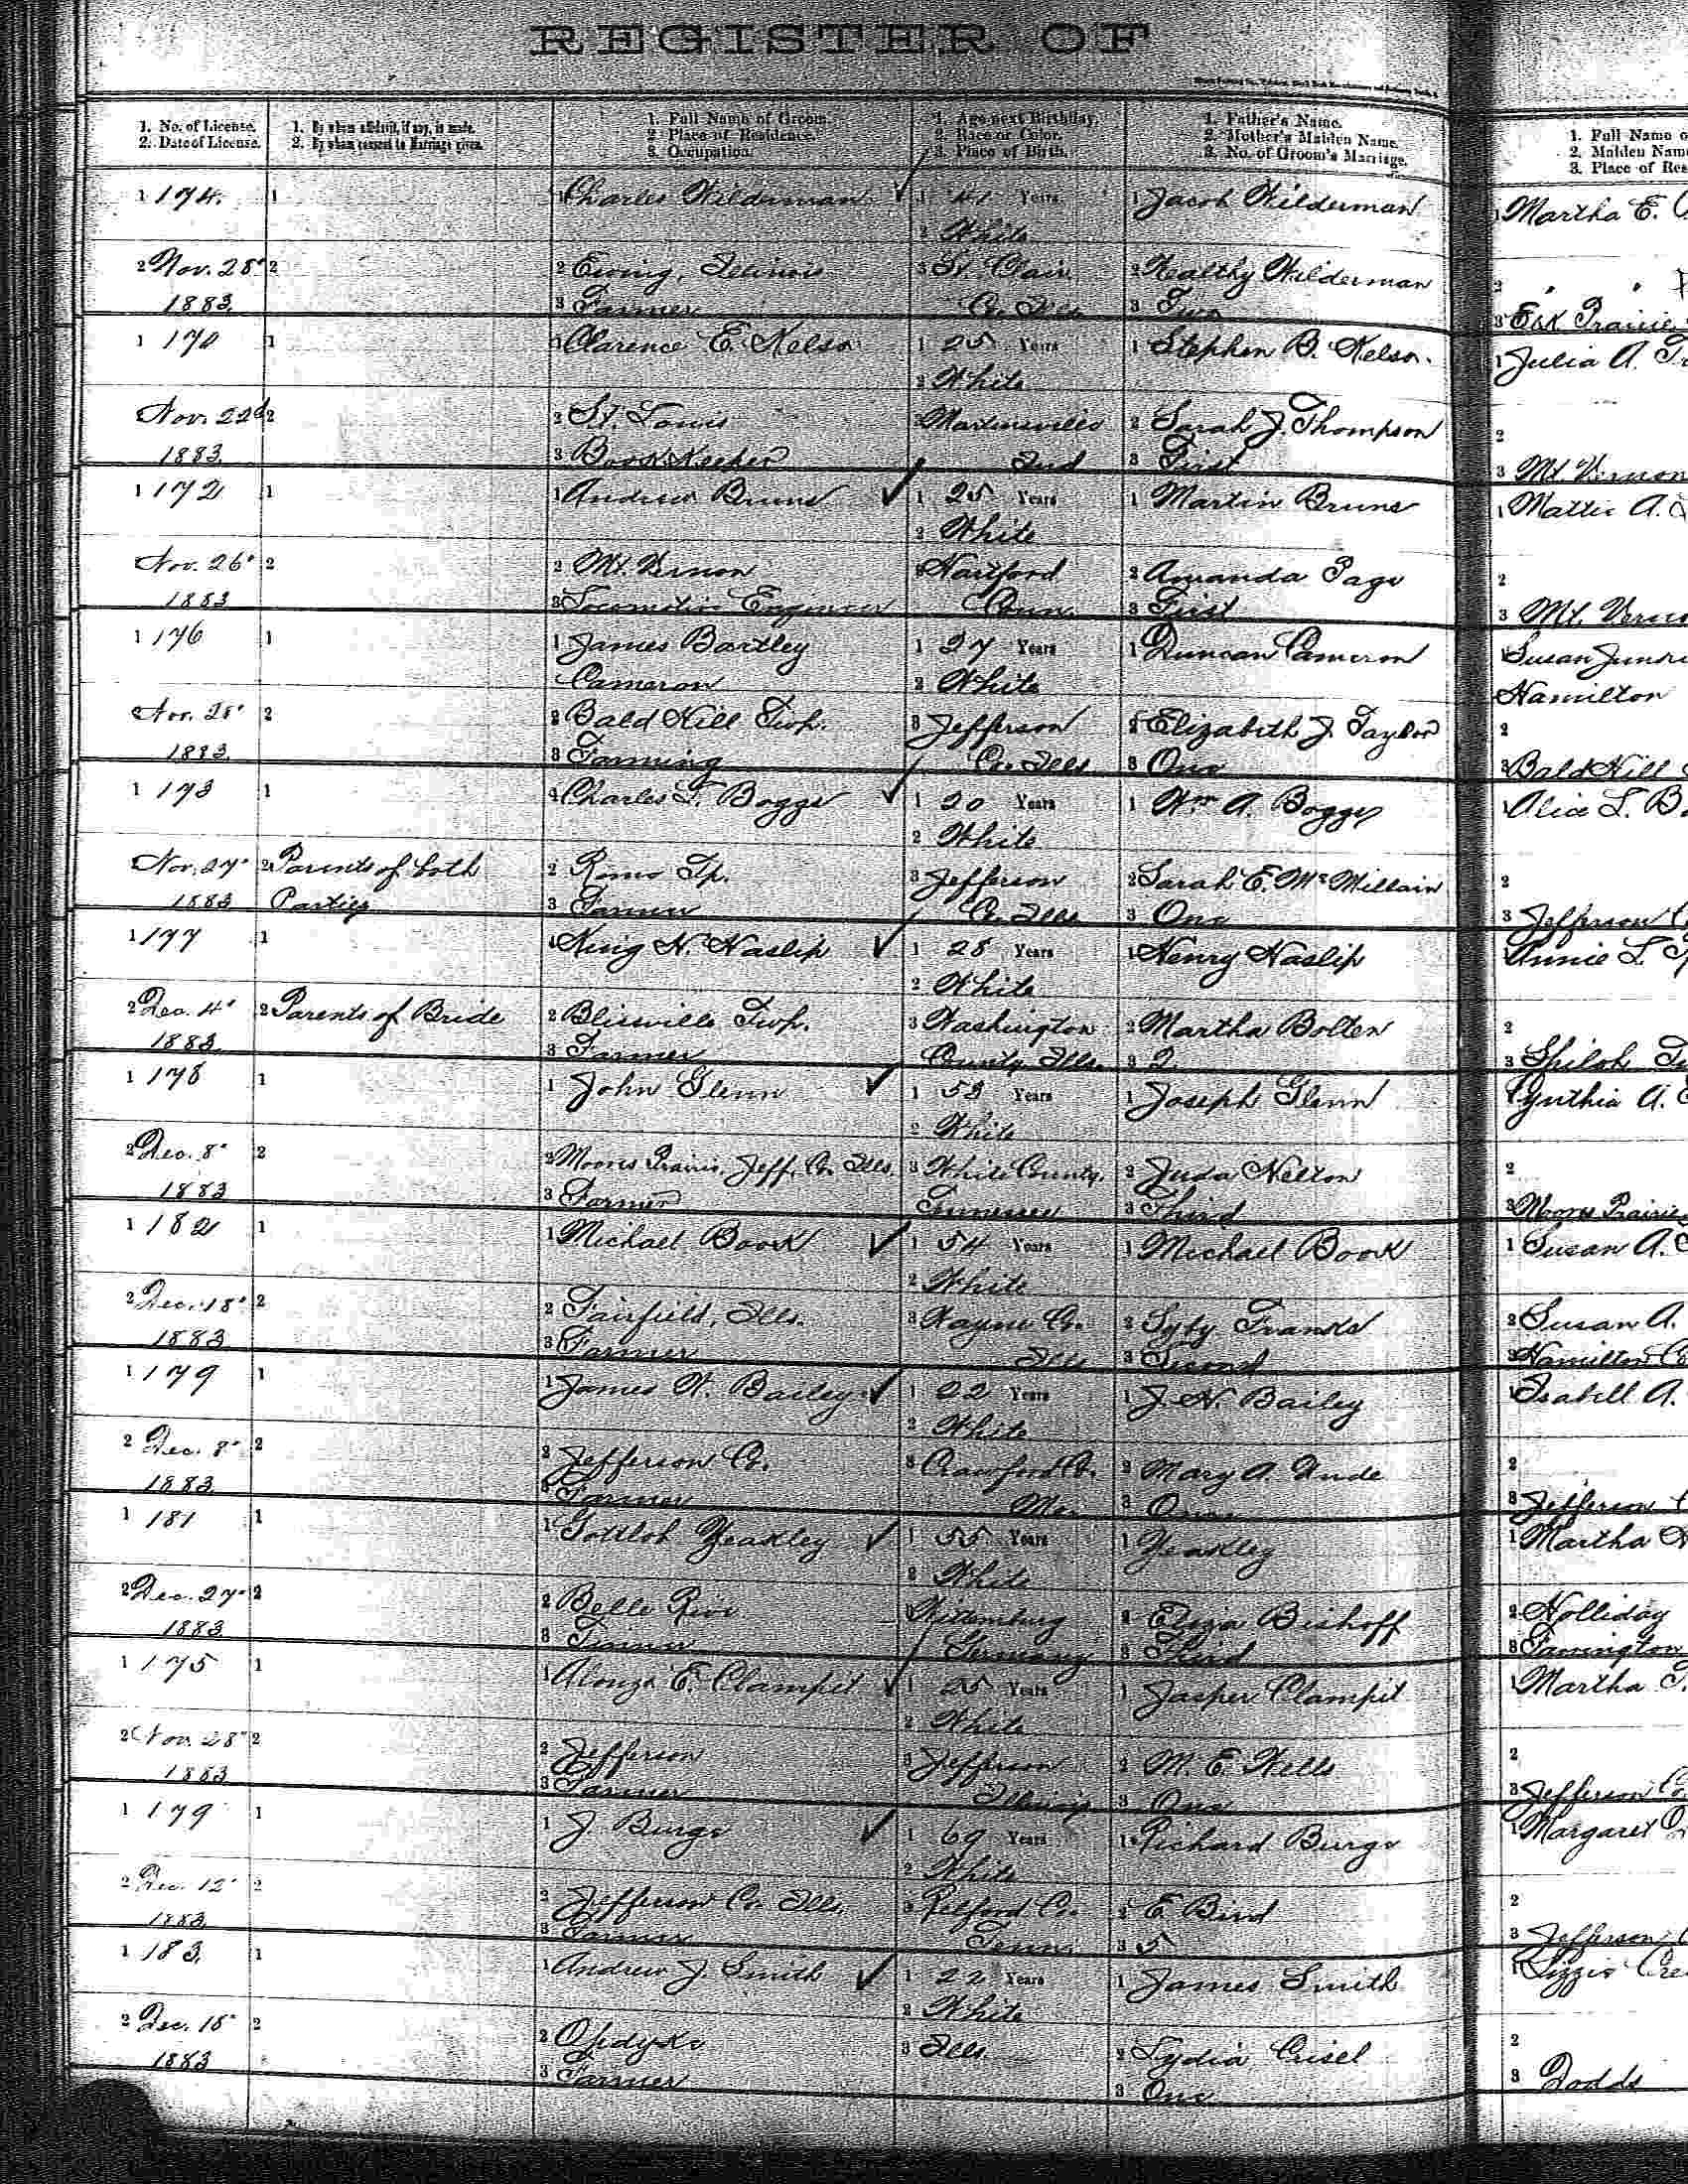 REGISTER OF
1. No. of License. 1. By whom affidavit, if any, is made. 1. Full Name of Groom. 1. Age next Birthday. 1. Father's Name. 1. Full Name o
2. Date of License. 2. By whom consent to Marriage given. 2. Place of Residence. 2. Race or Color. 2. Mother's Maiden Name. 2. Maiden Nam
3. Occupation. 3. Place of Birth. 3. No. of Groom's Marriage. 3. Place of Res
1 174. 1 1 Charles Wilderman 1 41 Years 1 Jacob Wilderman 1 Martha E.
2 White
2 Nov. 28" 2 2 Ewing, Illinois 3 St. Clair 2 Healthy Wilderman 2 " "
1883. 3 Farmer Co. Ills. 3 Two 3 Elk Prairie
1 170 1 1 Clarence E. Kelso 1 25 Years 1 Stephen B. Kelso. 1 Julia A.
2 White
Nov. 22d 2 2 St. Louis Martinsville 2 Sarah J. Thompson 2
1883. 3 Book Keeper Ind 3 First 3 Mt. Vernon
1 172 1 1 Andrew Bruns 1 25 Years 1 Martin Bruns 1 Mattie A.
2 White
Nov. 26" 2 2 Mt. Vernon 3 Hartford 2 Amanda Page 2
1883 3 Locomotive Engineer Conn. 3 First 3 Mt. Verno
1 176 1 1 James Bartley 1 27 Years 1 Duncan Cameron 1 Susan
Cameron 2 White Hamilton
Nov. 28" 2 2 Bald Hill Twp. 3 Jefferson 2 Elizabeth J. Taylor 2
1883. 3 Farming Co. Ills 3 One 3 Bald Hill
1 173 1 1 Charles T. Boggs 1 20 Years 1 Wm A. Boggs 1 Alice L. B
2 White
Nov. 27" 2 Parents of both 2 Rome Tp. 3 Jefferson 2 Sarah E. McMillain 2
1883 Parties 3 Farmer Co. Ills 3 One 3 Jefferson C
1 177 1 1 King H. Haslip 1 28 Years 1 Henry Haslip Annie L.
2 White
2 Dec. 4" 2 Parents of Bride 2 Blissville Twp. 3 Washington 2 Martha Bolten 2
1883. 3 Farmer County Ills. 3 2 3 Shiloh
1 178 1 1 John Glenn 1 53 Years 1 Joseph Glenn Cynthia A.
2 White
2 Dec. 8" 2 2 Moores Prairie, Jeff. Co. Ills. 3 White County, 2 Juda Nelton 2
1883 3 Farmer Tennessee 3 Third 3 Moores Prairie
1 182 1 1 Michael Book 1 54 Years 1 Michael Book 1 Susan A.
2 White
2 Dec. 18" 2 2 Fairfield, Ills. 3 Wayne Co. 2 Franks 2 Susan A.
1883 3 Farmer Ills 3 Second 3 Hamilton Co
1 179 1 1 James W. Bailey 1 22 Years 1 J. H. Bailey 1 Isabell A.
2 White
2 Dec. 8" 2 2 Jefferson Co. 3 Crawford Co. 2 Mary A. 2
1883. 3 Farmer Mo. 3 One 3 Jefferson C
1 181 1 1 Gottlob Yeakley 1 55 Years 1 Yeakley 1 Martha
2 White
2 Dec. 27" 2 2 Belle Rive Wittemburg 2 Eliza Bishoff 2 Holliday
1883 3 Farmer Germany 3 Third 3 Farrington
1 175 1 1 Alonzo E. Clampit 1 25 Years 1 Jasper Clampit 1 Martha
2 White
2 Nov. 28" 2 2 Jefferson 3 Jefferson 2 M. E. Wells 2
1883 3 Farmer Illinois 3 One 3 Jefferson Co
1 179 1 1 J. Burge 1 69 Years 1 Richard Burge 1 Margaret
2 White
2 Dec. 12" 2 2 Jefferson Co. Ills. 3 Co. 2 E Bird 2
1883 3 Farmer Tenn. 3 5 3 Jefferson C
1 183. 1 1 Andrew J. Smith 1 22 Years 1 James Smith 1 Lizzie Cre
2 White
2 Dec. 18" 2 2 Opdyke 3 Ills. 2 Lydia Crisel 2
1883 3 Farmer 3 One 3 Dodds